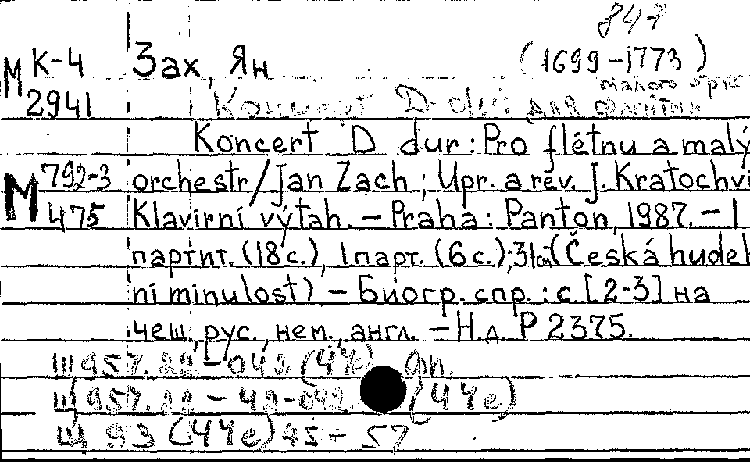 847
М К-4 Зах, Ян (1699-1773)
2941 Концерт D dur для флейты малого орк
Koncert D dur: Pro flétnu a malý
М 792-3 orchestr/Jan Zach; Upr. a rev. J. Kratochví
475 Klavirní výtah. – Praha: Panton, 1987. – 1
партит. (18 с.), 1 парт. (6 с.); 31см (Česká hudeb
ní minulost) – Биогр. спр.: с. [2-3] на
чеш., рус., нем., англ. – Н.д. Р 2375.
Ш 957.22-042 (44е)
Ш 957.22-42-042 (44е)
Ш 93 (44е) 45-57